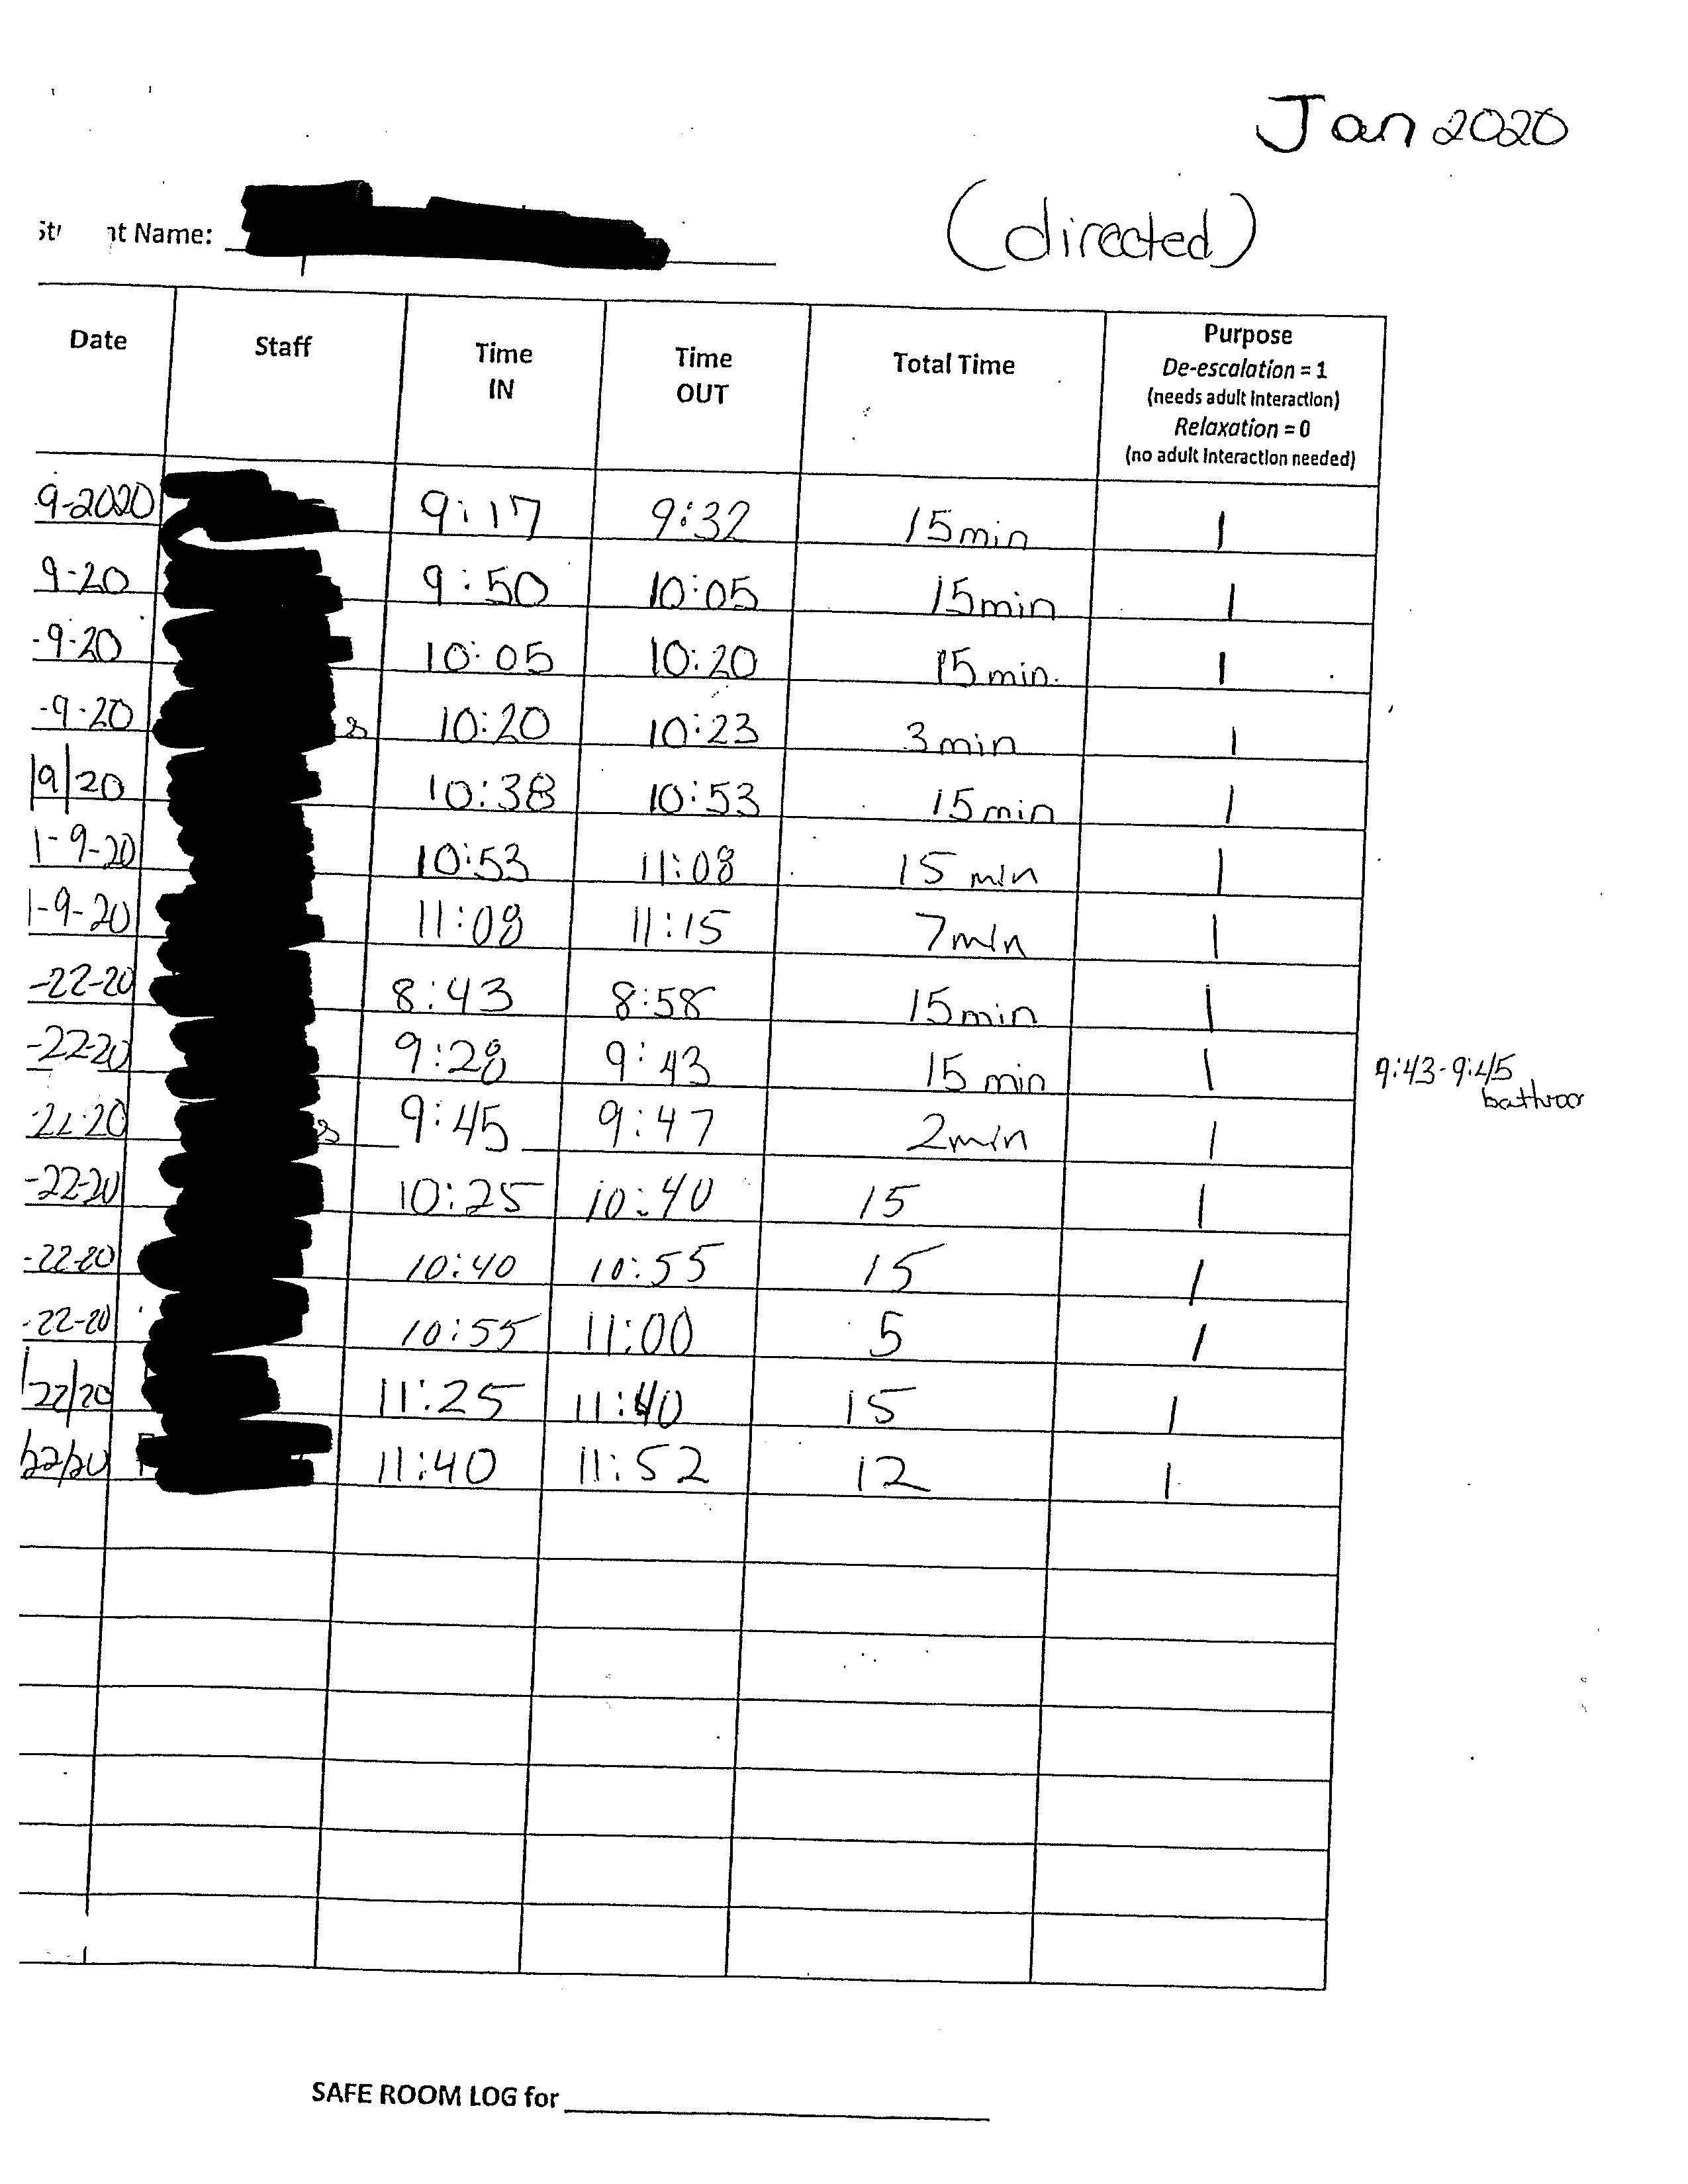 Jan 2020
(directed)
nt Name:
Date Staff Time IN Time OUT Total Time Purpose
De-escalation = 1
(needs adult interaction)
Relaxation = 0
(no adult interaction needed)
9-2020 9:17 9:32 15min 1
9-20 9:50 10:05 15min 1
-9-20 10:05 10:20 15min. 1
-9-20 s 10:20 10:23 3min 1
|9/20 10:38 10:53 15min 1
1-9-20 10:53 11:08 15 min 1
1-9-20 11:08 11:15 7min 1
-22-20 8:43 8:58 15min 1
-22-20 9:28 9:43 15 min 1 9:43-9:45
bathroo
-22-20 s 9:45 9:47 2min 1
-22-20 10:25 10:40 15 1
-22-20 10:40 10:55 15 1
-22-20 10:55 11:00 5 1
/22/20 11:25 11:40 15 1
/22/20 11:40 11:52 12 1
SAFE ROOM LOG for